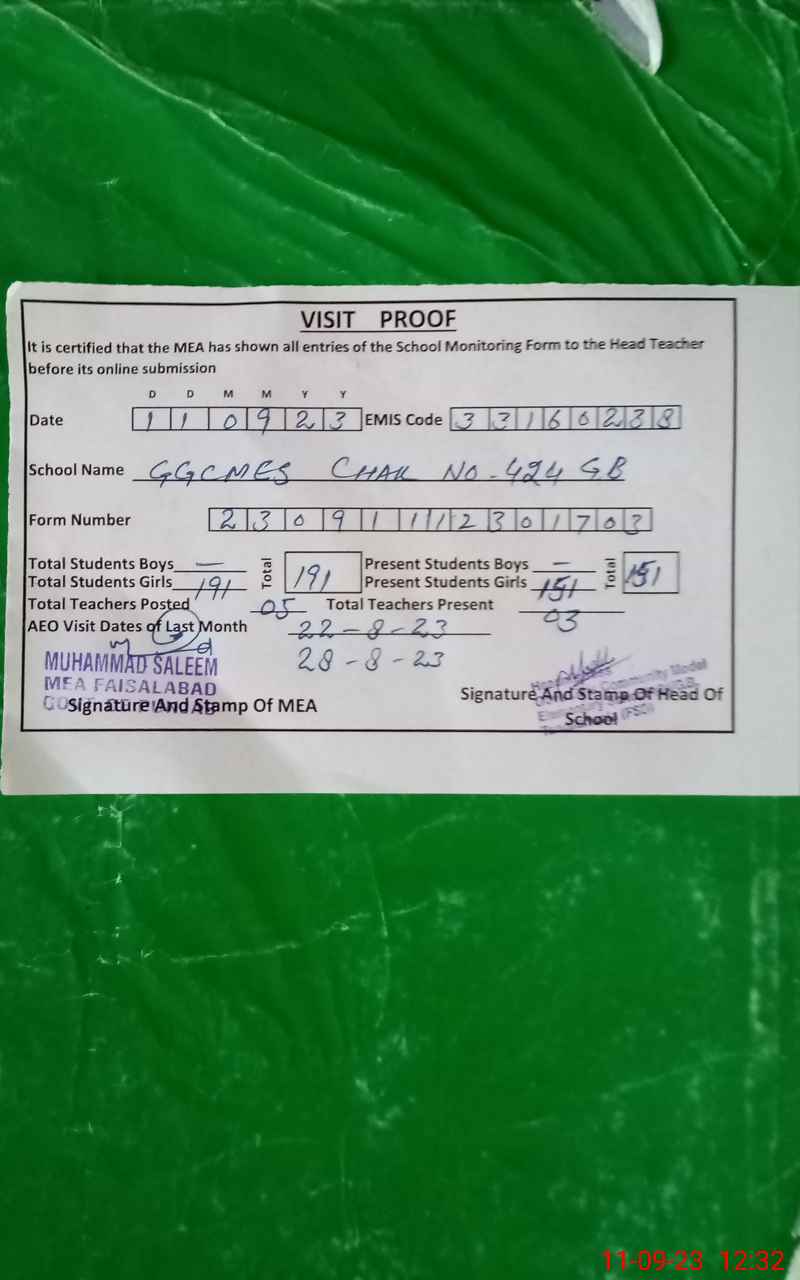 VISIT PROOF
It is certified that the MEA has shown all entries of the School Monitoring Form to the Head Teacher
before its online submission
D D M M Y Y
Date 1 1 0 9 2 3 EMIS Code 3 3 1 6 0 2 3 8
School Name GGCMES CHAK NO - 424 GB
Form Number 2 3 0 9 1 1 1 2 3 0 1 7 0 3
Total Students Boys — Total 191 Present Students Boys — Total 151
Total Students Girls 191 Present Students Girls 151
Total Teachers Posted 05 Total Teachers Present 03
AEO Visit Dates of Last Month 22-8-23
28-8-23
MUHAMMAD SALEEM
MEA FAISALABAD
Signature And Stamp Of MEA
Community Model
Signature And Stamp Of Head Of
School
11-09-23 12:32